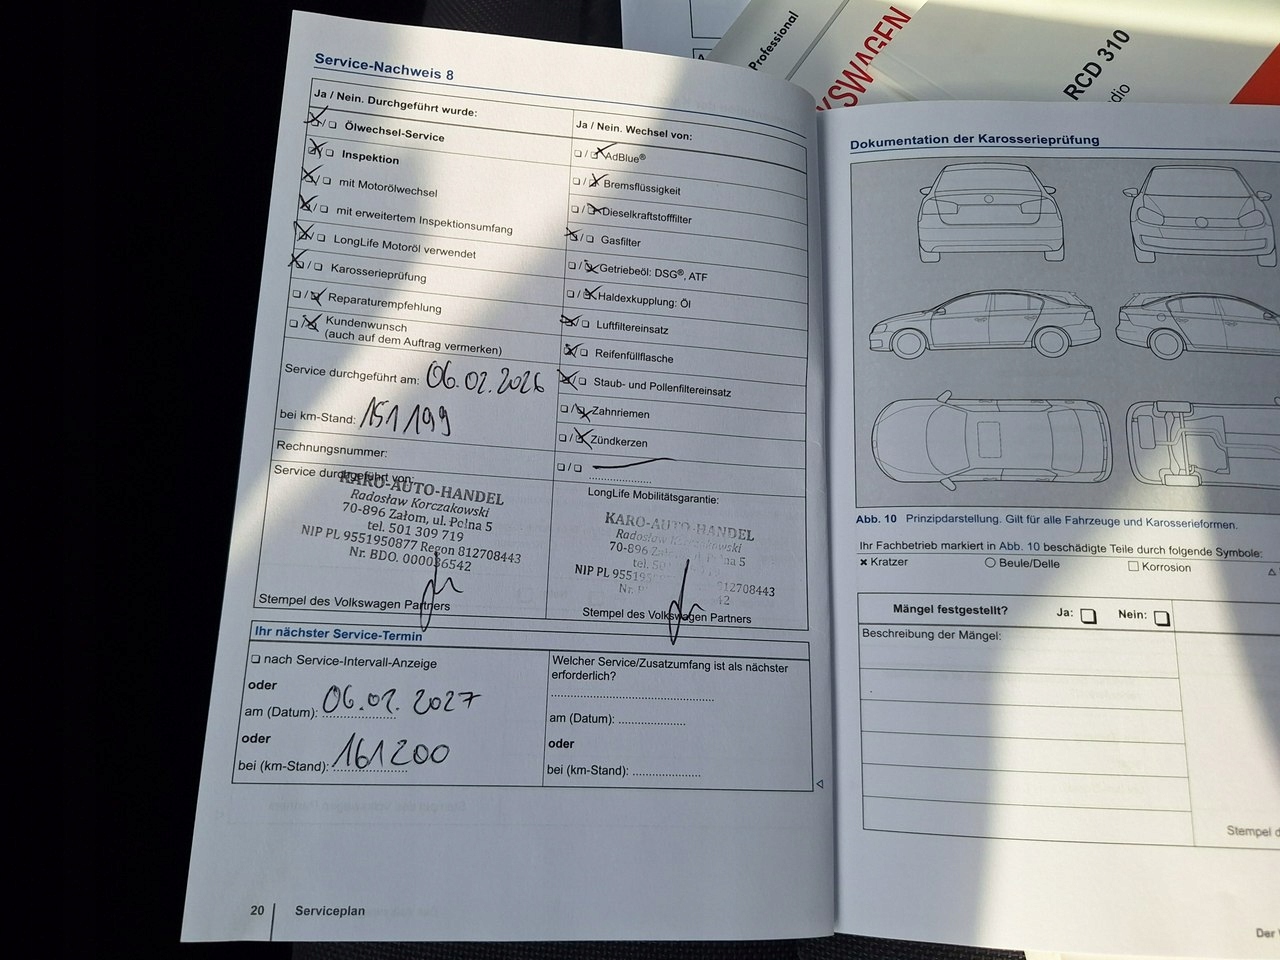 Professional
KSWAGEN
RCD 310
dio
Service-Nachweis 8
Ja / Nein. Durchgeführt wurde:
❏/❏ Ölwechsel-Service
❏/❏ Inspektion
❏/❏ mit Motorölwechsel
❏/❏ mit erweitertem Inspektionsumfang
❏/❏ LongLife Motoröl verwendet
❏/❏ Karosserieprüfung
❏/❏ Reparaturempfehlung
❏/❏ Kundenwunsch
(auch auf dem Auftrag vermerken)
Service durchgeführt am: 06.02.2026
bei km-Stand: 151 199
Rechnungsnummer:
Service durchgeführt von:
KARO-AUTO-HANDEL
Radosław Korczakowski
70-896 Załom, ul. Pełna 5
tel. 501 309 719
NIP PL 9551950877 Regon 812708443
Nr. BDO. 000036542
Stempel des Volkswagen Partners
Ja / Nein. Wechsel von:
❏/❏ AdBlue®
❏/❏ Bremsflüssigkeit
❏/❏ Dieselkraftstofffilter
❏/❏ Gasfilter
❏/❏ Getriebeöl: DSG®, ATF
❏/❏ Haldexkupplung: Öl
❏/❏ Luftfiltereinsatz
❏/❏ Reifenfüllflasche
❏/❏ Staub- und Pollenfiltereinsatz
❏/❏ Zahnriemen
❏/❏ Zündkerzen
❏/❏
LongLife Mobilitätsgarantie:
KARO-AUTO-HANDEL
Radosław Korczakowski
70-896 Za na 5
tel. 50
NIP PL 95519 812708443
Nr. 42
Stempel des Volkswagen Partners
Ihr nächster Service-Termin
❏ nach Service-Intervall-Anzeige
oder
am (Datum): 06.02.2027
oder
bei (km-Stand): 161200
Welcher Service/Zusatzumfang ist als nächster
erforderlich?
am (Datum):
oder
bei (km-Stand):
20 Serviceplan
Dokumentation der Karosserieprüfung
Abb. 10 Prinzipdarstellung. Gilt für alle Fahrzeuge und Karosserieformen.
Ihr Fachbetrieb markiert in Abb. 10 beschädigte Teile durch folgende Symbole:
× Kratzer ○ Beule/Delle □ Korrosion △
Mängel festgestellt? Ja: ❏ Nein: ❏
Beschreibung der Mängel:
Stempel d
Der